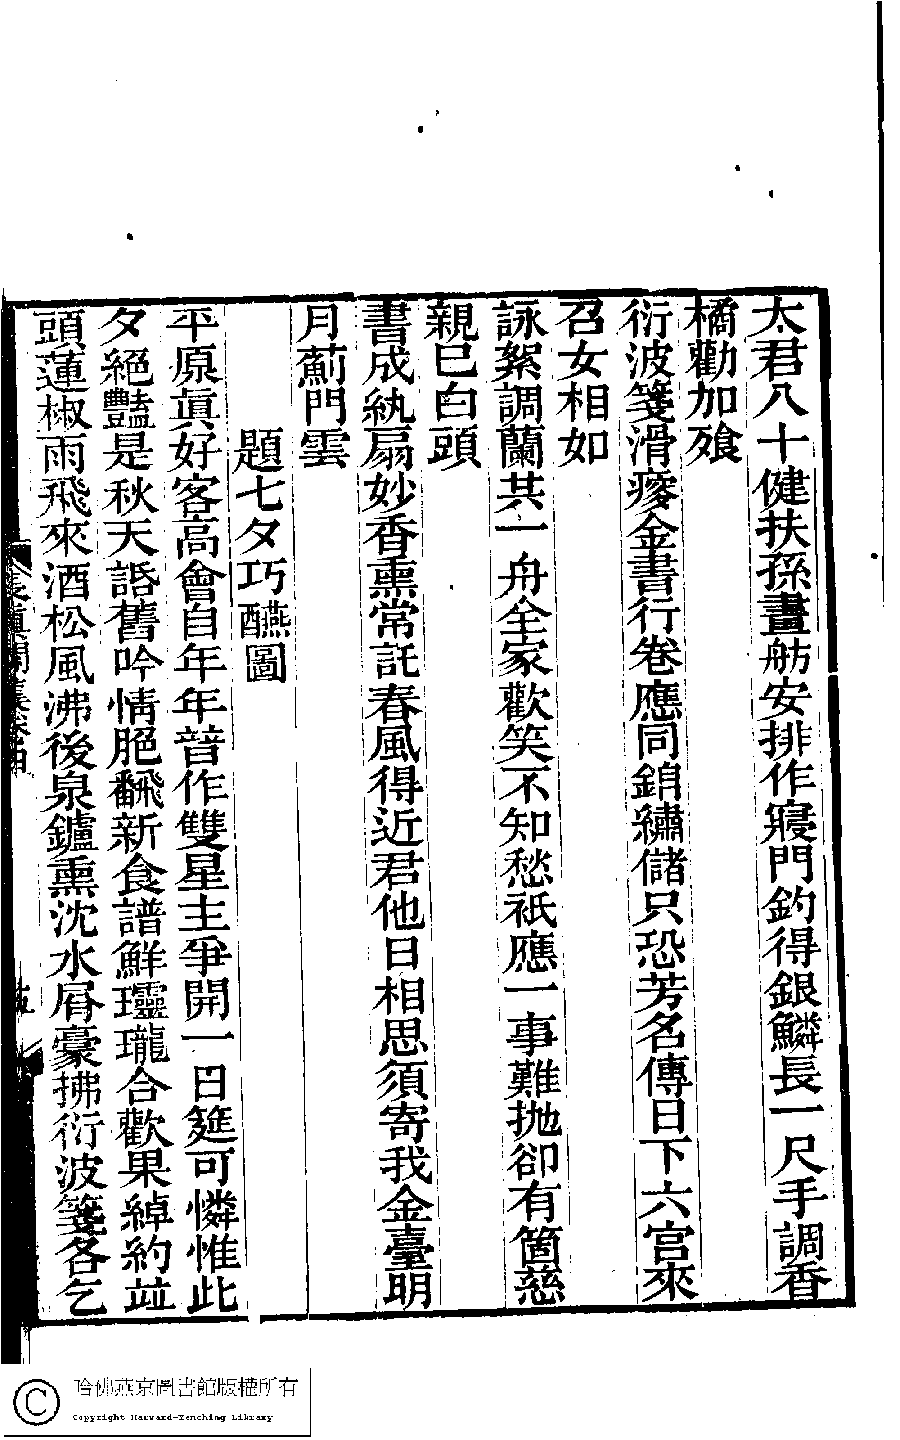 太君八十健扶孫畫舫安排作寢門釣得銀鱗長一尺手調香
橘勸加飱
衍波箋滑瘞金書行卷應同錦繡儲只恐芳名傳日下六宮來
召女相如
詠絮調蘭共一舟全家歡笑不知愁祇應一事難拋卻有箇慈
親已白頭
書成紈扇妙香熏常託春風得近君他日相思須寄我金臺明
月薊門雲
題七夕巧醼圖
平原眞好客高會自年年暜作雙星主爭開一日筵可憐惟此
夕絕豔是秋天
話舊吟情脃翻新食譜鮮瓏合歡果綽約竝
頭蓮椒雨飛來酒松風沸後泉鑪熏沈水屑豪拂衍波箋各乞
哈佛燕京圖書館版權所有
Copyright Harvard-Yenching Library